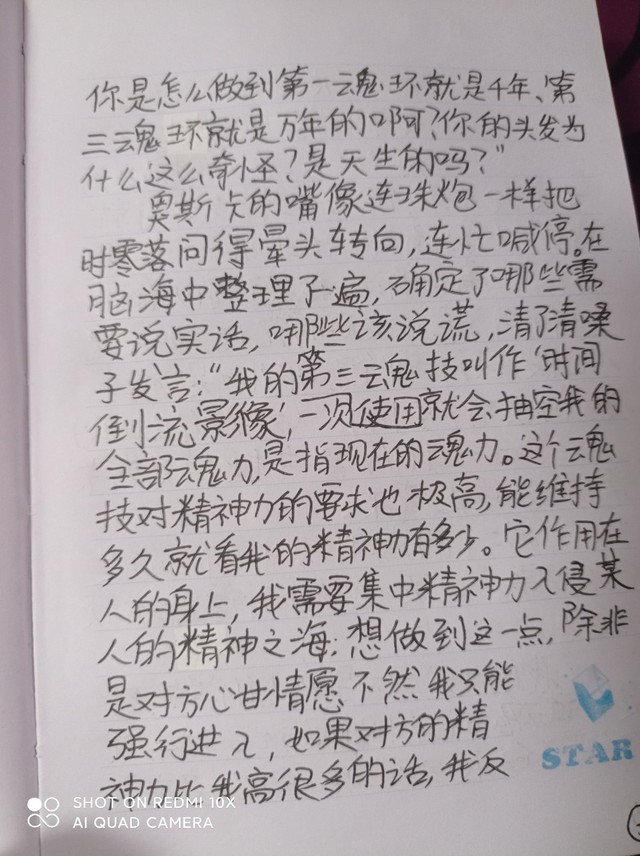 你是怎么做到第一魂环就是千年、第
三魂环就是万年的啊?你的头发为
什么这么奇怪?是天生的吗?”
奥斯卡的嘴像连珠炮一样把
时零落问得晕头转向,连忙喊停。在
脑海中整理了遍,确定了哪些需
要说实话,哪些该说谎,清了清嗓
子发言:“我的第三魂技叫作‘时间
倒流影像’,一次使用就会抽空我的
全部魂力,是指现在的魂力。这个魂
技对精神力的要求也极高,能维持
多久就看我的精神力有多少。它作用在
人的身上,我需要集中精神力入侵某
人的精神之海;想做到这一点,除非
是对方心甘情愿不然我只能
强行进入,如果对方的精
神力比我高很多的话,我反
STAR
SHOT ON REDMI 10X
AI QUAD CAMERA